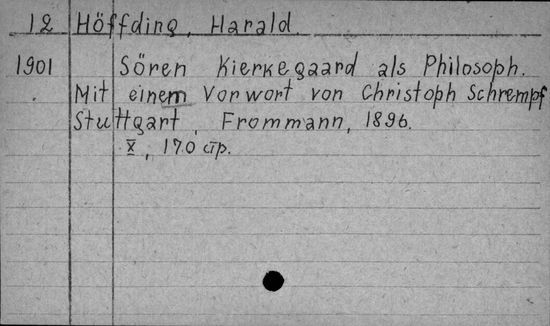 12 Höffding, Harald.
1901 Sören Kierkegaard als Philosoph.
Mit einem Vorwort von Christoph Schrempf
Stuttgart, Frommann, 1896.
X, 170 стр.